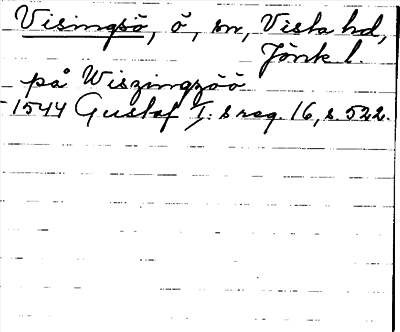 Visingsö, ö, sn, Vista hd,
Jönk l.
på Wiszingzöö
1544 Gustaf I: s reg. 16, s. 522.